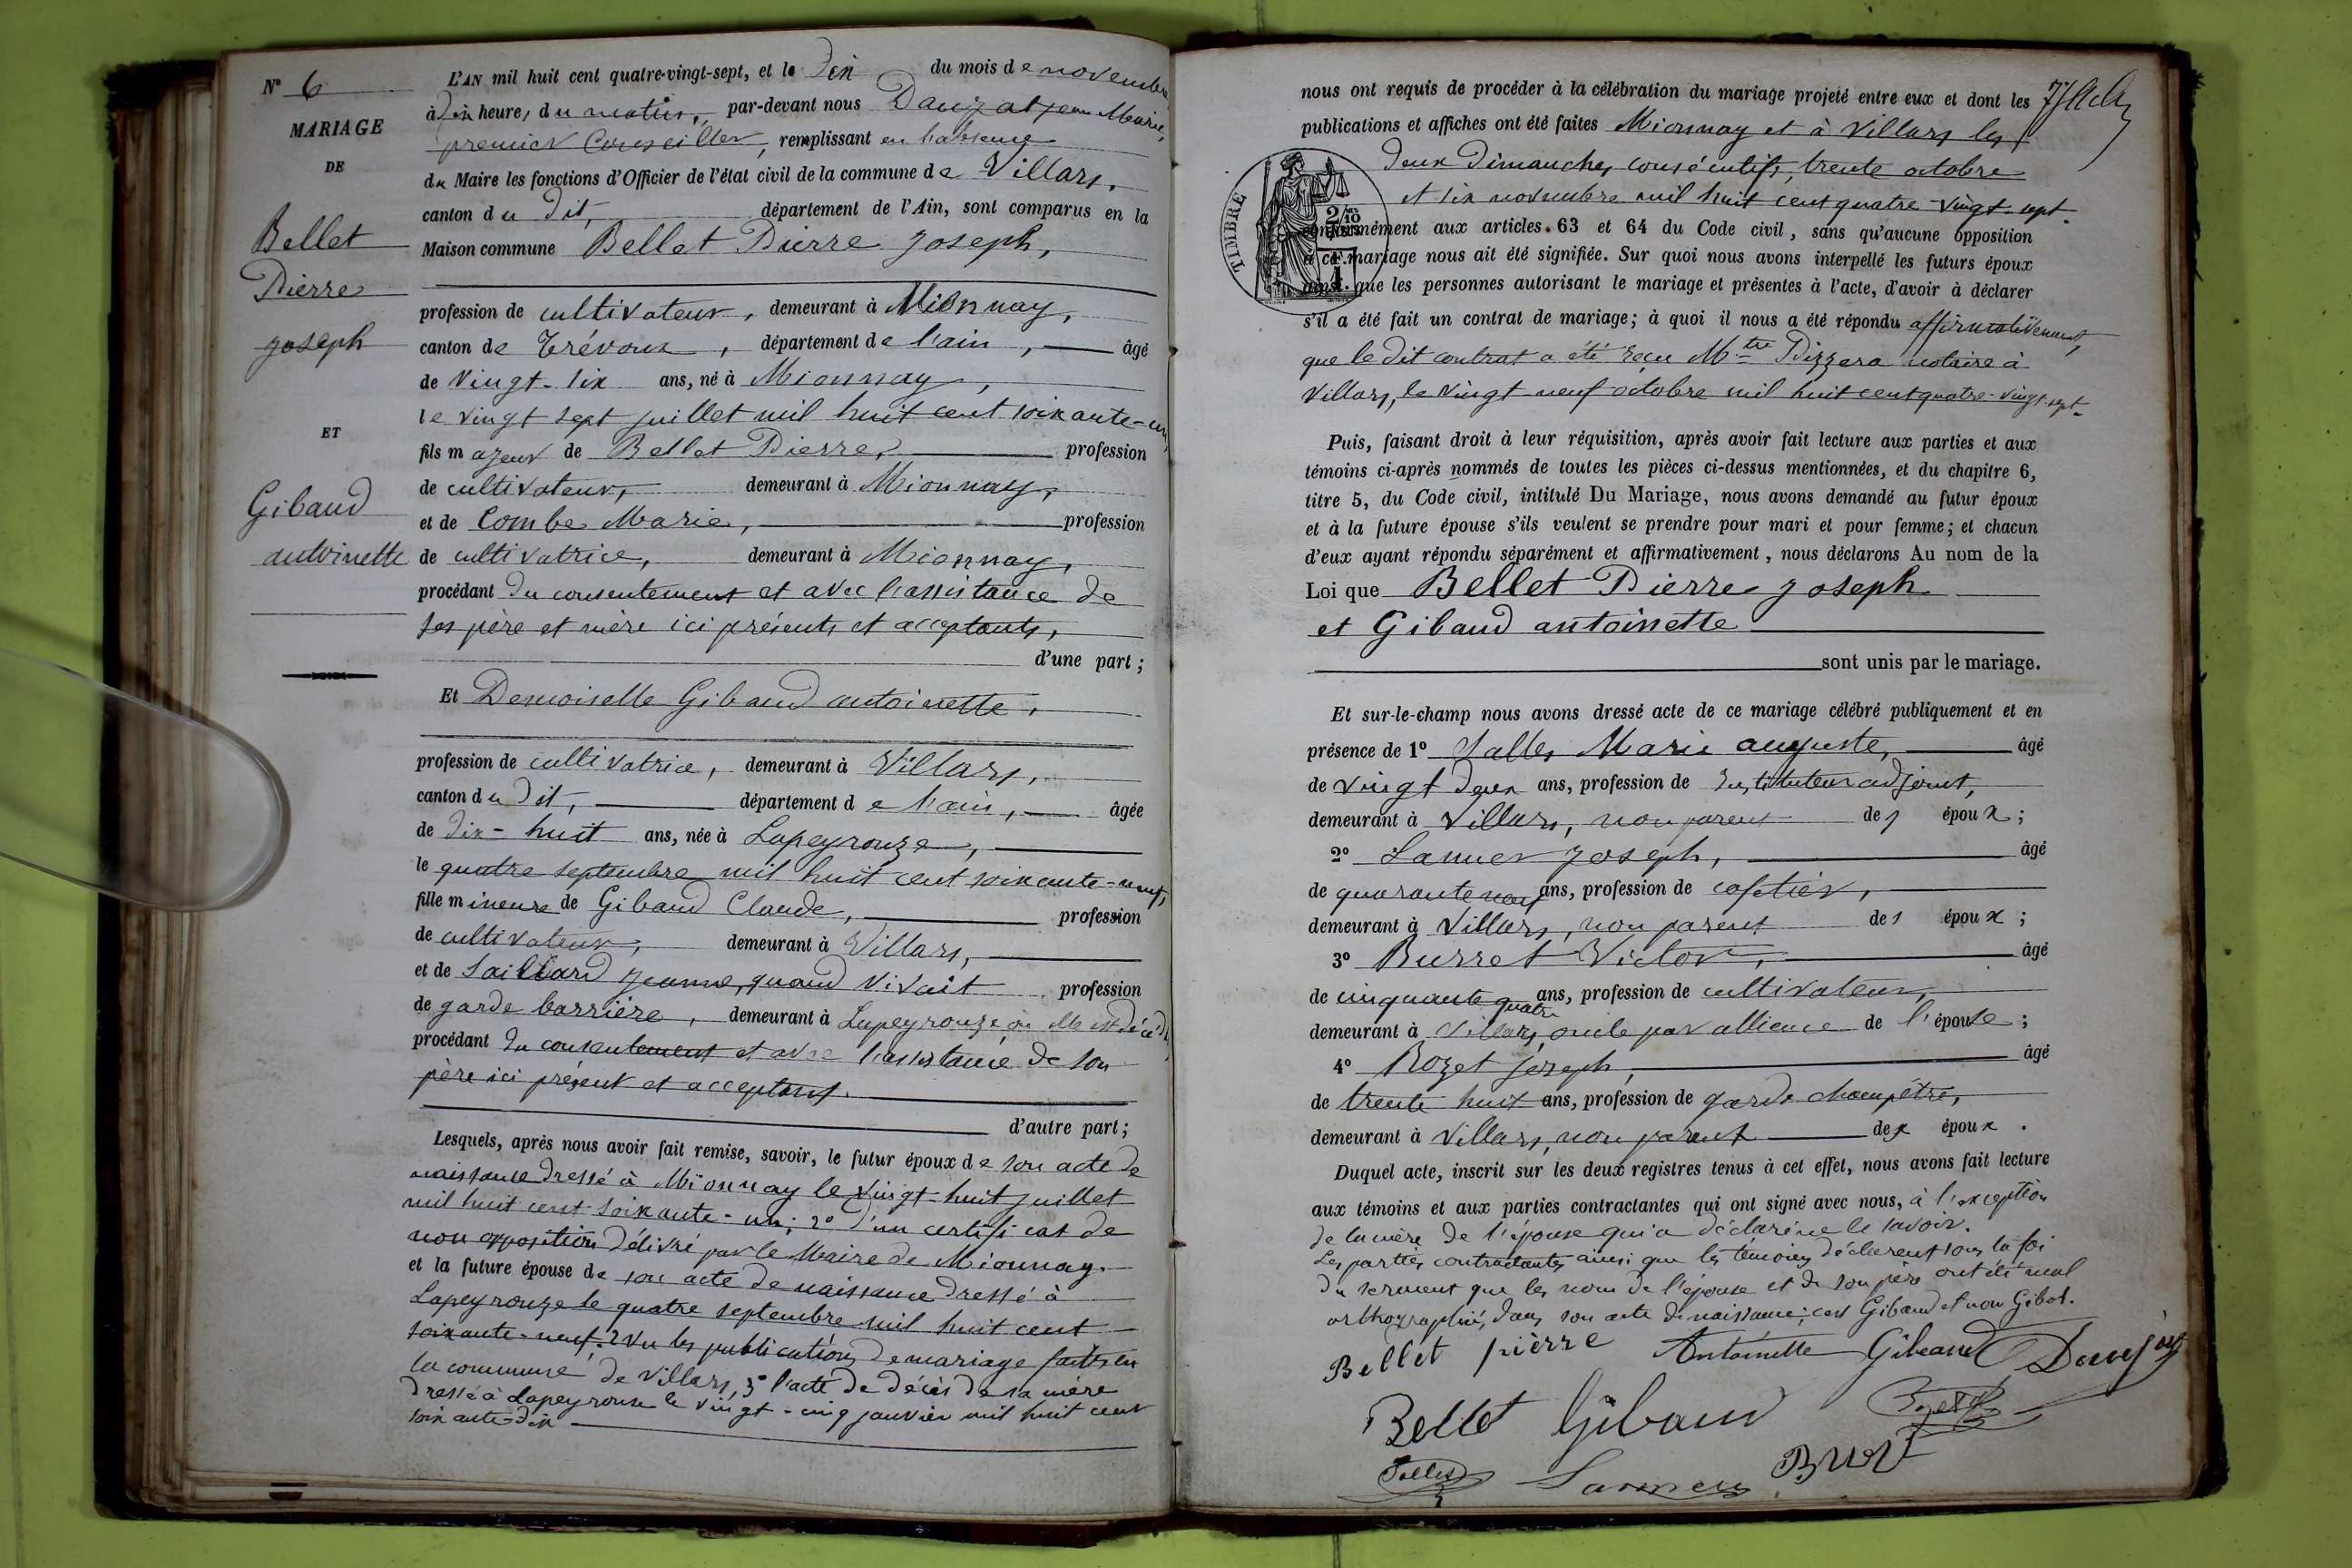 N° 6
MARIAGE
DE
Bellet
Pierre
joseph
ET
Gibaud
antoinette
L'AN mil huit cent quatre-vingt-sept, et le dix du mois de novembre
à dix heures du matin, par-devant nous Dauzat jean Marie,
premier Conseiller, remplissant en l'absence
du Maire les fonctions d'Officier de l'état civil de la commune de Villars,
canton du dit, département de l'Ain, sont comparus en la
Maison commune Bellet Pierre joseph,
profession de cultivateur, demeurant à Mionnay,
canton de Trévoux, département de l'ain, âgé
de vingt-six ans, né à Mionnay,
le vingt sept juillet mil huit cent soixante-un,
fils majeur de Bellet Pierre, profession
de cultivateur, demeurant à Mionnay,
et de Combe Marie, profession
de cultivatrice, demeurant à Mionnay,
procédant du consentement et avec l'assistance de
ses père et mère ici présents et acceptants,
d'une part;
Et Demoiselle Gibaud antoinette,
profession de cultivatrice, demeurant à Villars,
canton du dit, département de l'ain, âgée
de dix-huit ans, née à Lapeyrouze,
le quatre septembre mil huit cent soixante-neuf,
fille mineure de Gibaud Claude, profession
de cultivateur, demeurant à Villars,
et de Saillard jeanne, quand vivait profession
de garde barrière, demeurant à Lapeyrouze où elle est décédée,
procédant du consentement et avec l'assistance de son
père ici présent et acceptant.
d'autre part;
Lesquels, après nous avoir fait remise, savoir, le futur époux de son acte de
naissance dressé à Mionnay le vingt-huit juillet
mil huit cent soixante-un; 2° d'un certificat de
non opposition délivré par le Maire de Mionnay.
et la future épouse de son acte de naissance dressé à
Lapeyrouze le quatre septembre mil huit cent
soixante-neuf. 2° vu les publications de mariage faites en
la commune de Villars, 3° l'acte de décès de sa mère
dressé à Lapeyrouse le vingt-cinq janvier mil huit cent
soixante-dix
nous ont requis de procéder à la célébration du mariage projeté entre eux et dont les
publications et affiches ont été faites Mionnay et à Villars les
deux dimanches consécutifs, trente octobre
et six novembre mil huit cent quatre-vingt-sept.
TIMBRE
conformément aux articles 63 et 64 du Code civil, sans qu'aucune opposition
à ce mariage nous ait été signifiée. Sur quoi nous avons interpellé les futurs époux
ainsi que les personnes autorisant le mariage et présentes à l'acte, d'avoir à déclarer
s'il a été fait un contrat de mariage; à quoi il nous a été répondu affirmativement,
que le dit contrat a été reçu Mtre Pizzera notaire à
Villars, le vingt neuf octobre mil huit cent quatre-vingt-sept.
Puis, faisant droit à leur réquisition, après avoir fait lecture aux parties et aux
témoins ci-après nommés de toutes les pièces ci-dessus mentionnées, et du chapitre 6,
titre 5, du Code civil, intitulé Du Mariage, nous avons demandé au futur époux
et à la future épouse s'ils veulent se prendre pour mari et pour femme; et chacun
d'eux ayant répondu séparément et affirmativement, nous déclarons Au nom de la
Loi que Bellet Pierre joseph
et Gibaud antoinette
sont unis par le mariage.
Et sur-le-champ nous avons dressé acte de ce mariage célébré publiquement et en
présence de 1° Salles Marie auguste, âgé
de vingt deux ans, profession de Instituteur adjoint,
demeurant à Villars, non parent des époux;
2° Lanier joseph, âgé
de quarante neuf ans, profession de cafetier,
demeurant à Villars, non parent des époux;
3° Burret Victor, âgé
de cinquante quatre ans, profession de cultivateur,
demeurant à Villars, oncle par alliance de l'épouse;
4° Rozet joseph, âgé
de trente huit ans, profession de garde champêtre,
demeurant à Villars, non parent des époux.
Duquel acte, inscrit sur les deux registres tenus à cet effet, nous avons fait lecture
aux témoins et aux parties contractantes qui ont signé avec nous, à l'exception
de la mère de l'épouse qui a déclaré ne le savoir.
Les parties contractantes ainsi que les témoins déclarent sous la foi
du serment que les nom de l'épouse et de son père ont été mal
orthographiés dans son acte de naissance; c'est Gibaud et non Gibot.
Bellet pièrre Antoinette Gibaud Dauzat
Bellet Gibaud Rozet
Salles Lanier Burret